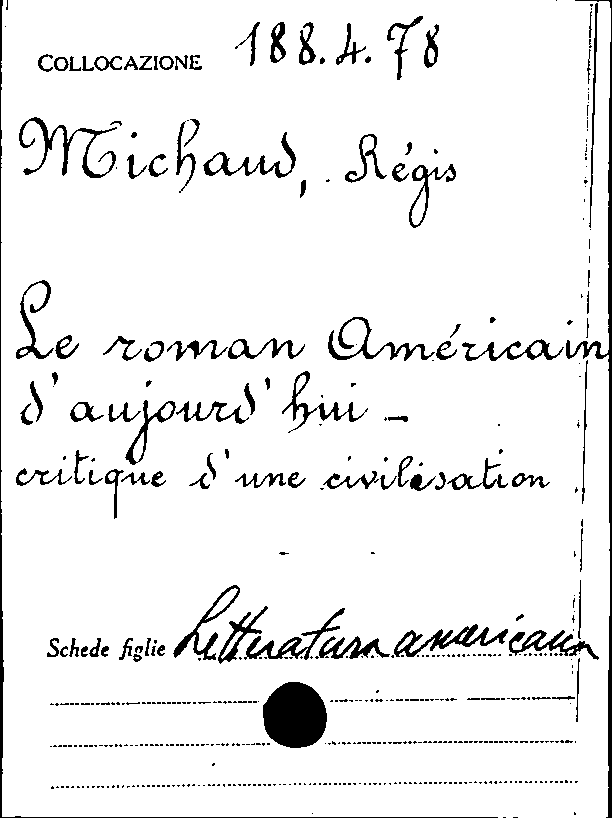 COLLOCAZIONE 188.4.78
Michaud, Régis
Le roman Américain
d'aujourd'hui -
critique d'une civilisation
Schede figlie Letteratura americana